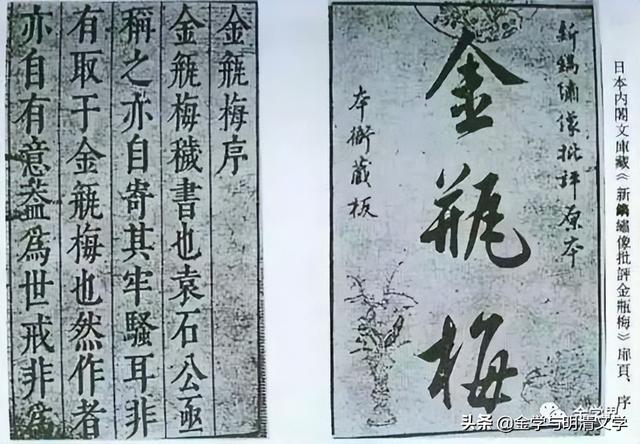 日本内閣文庫藏《新鐫繡像批評金瓶梅》扉頁、序
新鐫繡像批評原本
金瓶梅
本衙藏板
金瓶梅序
金瓶梅穢書也袁石公亟
稱之亦自寄其牢騷耳非
有取于金瓶梅也然作者
亦自有意葢為世戒非為
金学界
头条 @金学与明清文学